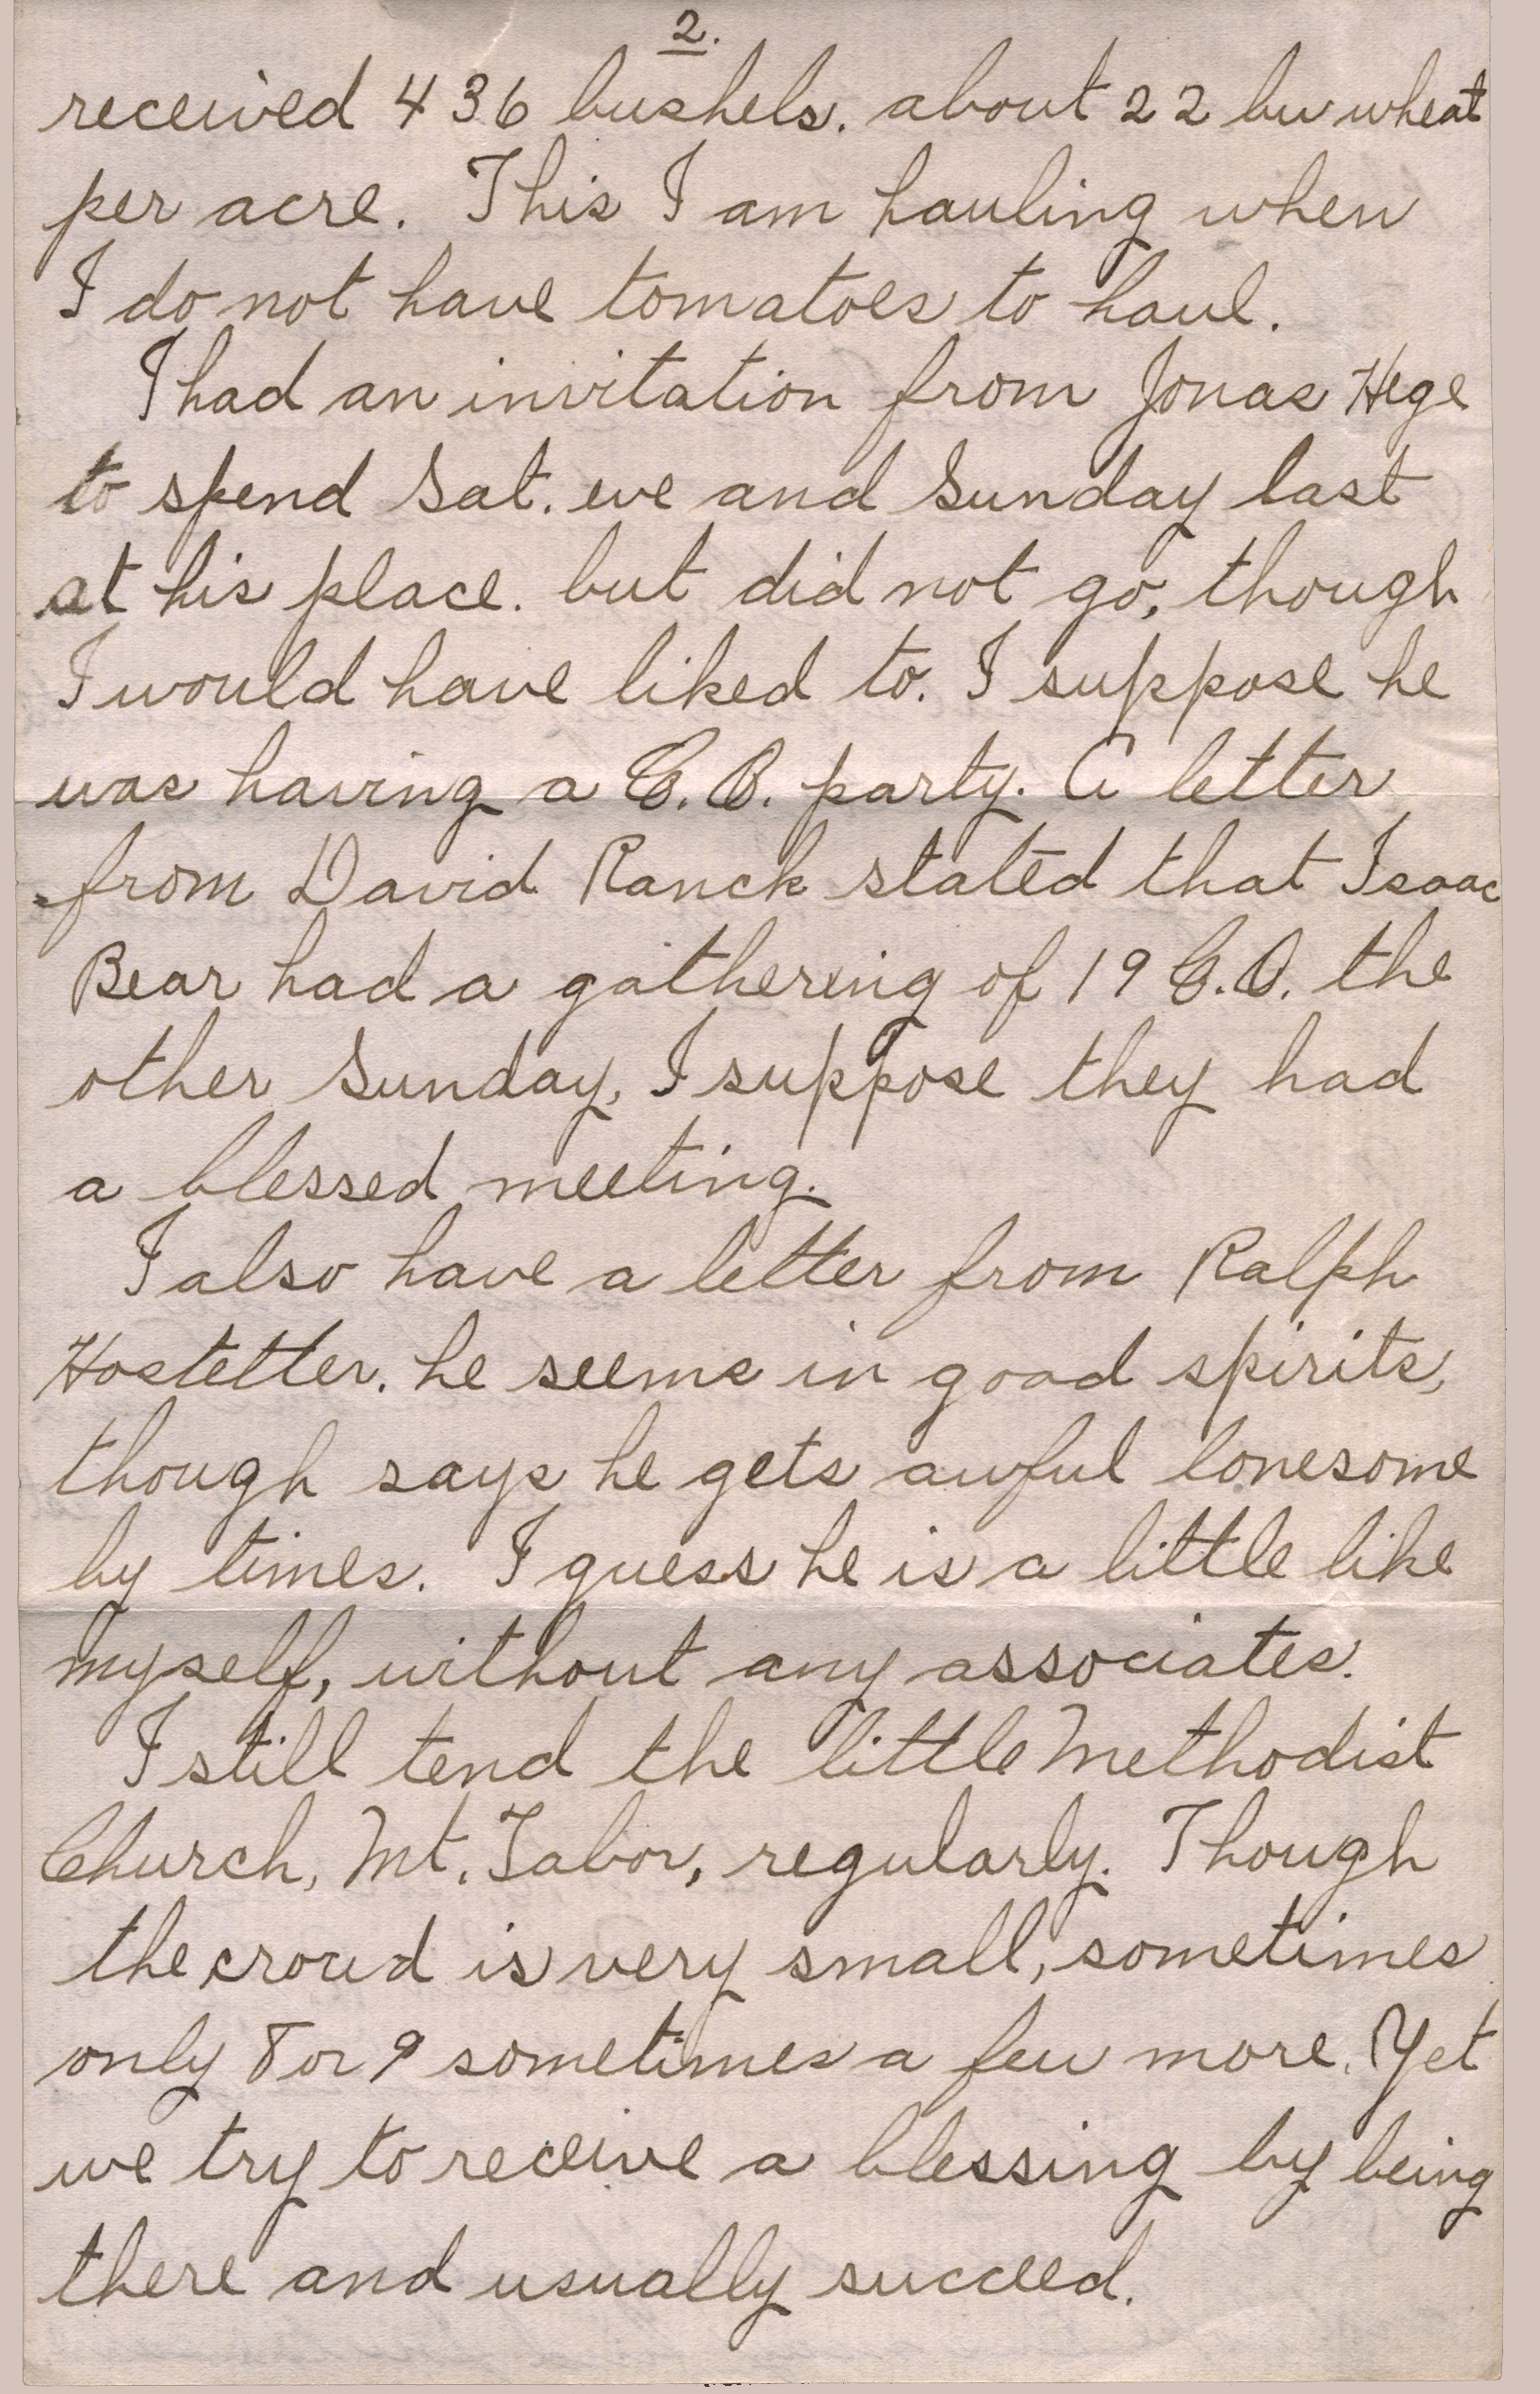 2.
received 436 bushels. about 22 bu wheat
per acre. This I am hauling when
I do not have tomatoes to haul.
I had an invitation from Jonas Hege
to spend Sat. eve and Sunday last
at his place. but did not go, though
I would have liked to. I suppose he
was having a C.O. party. A letter
from David Ranck stated that Isaac
Bear had a gathering of 19 C.O. the
other Sunday, I suppose they had
a blessed meeting.
I also have a letter from Ralph
Hostetter. he seems in good spirits,
though says he gets awful lonesome
by times. I guess he is a little like
myself, without any associates.
I still tend the little Methodist
Church, Mt. Tabor, regularly. Though
the crowd is very small, sometimes
only 8 or 9 sometimes a few more. Yet
we try to receive a blessing by being
there and usually succeed.